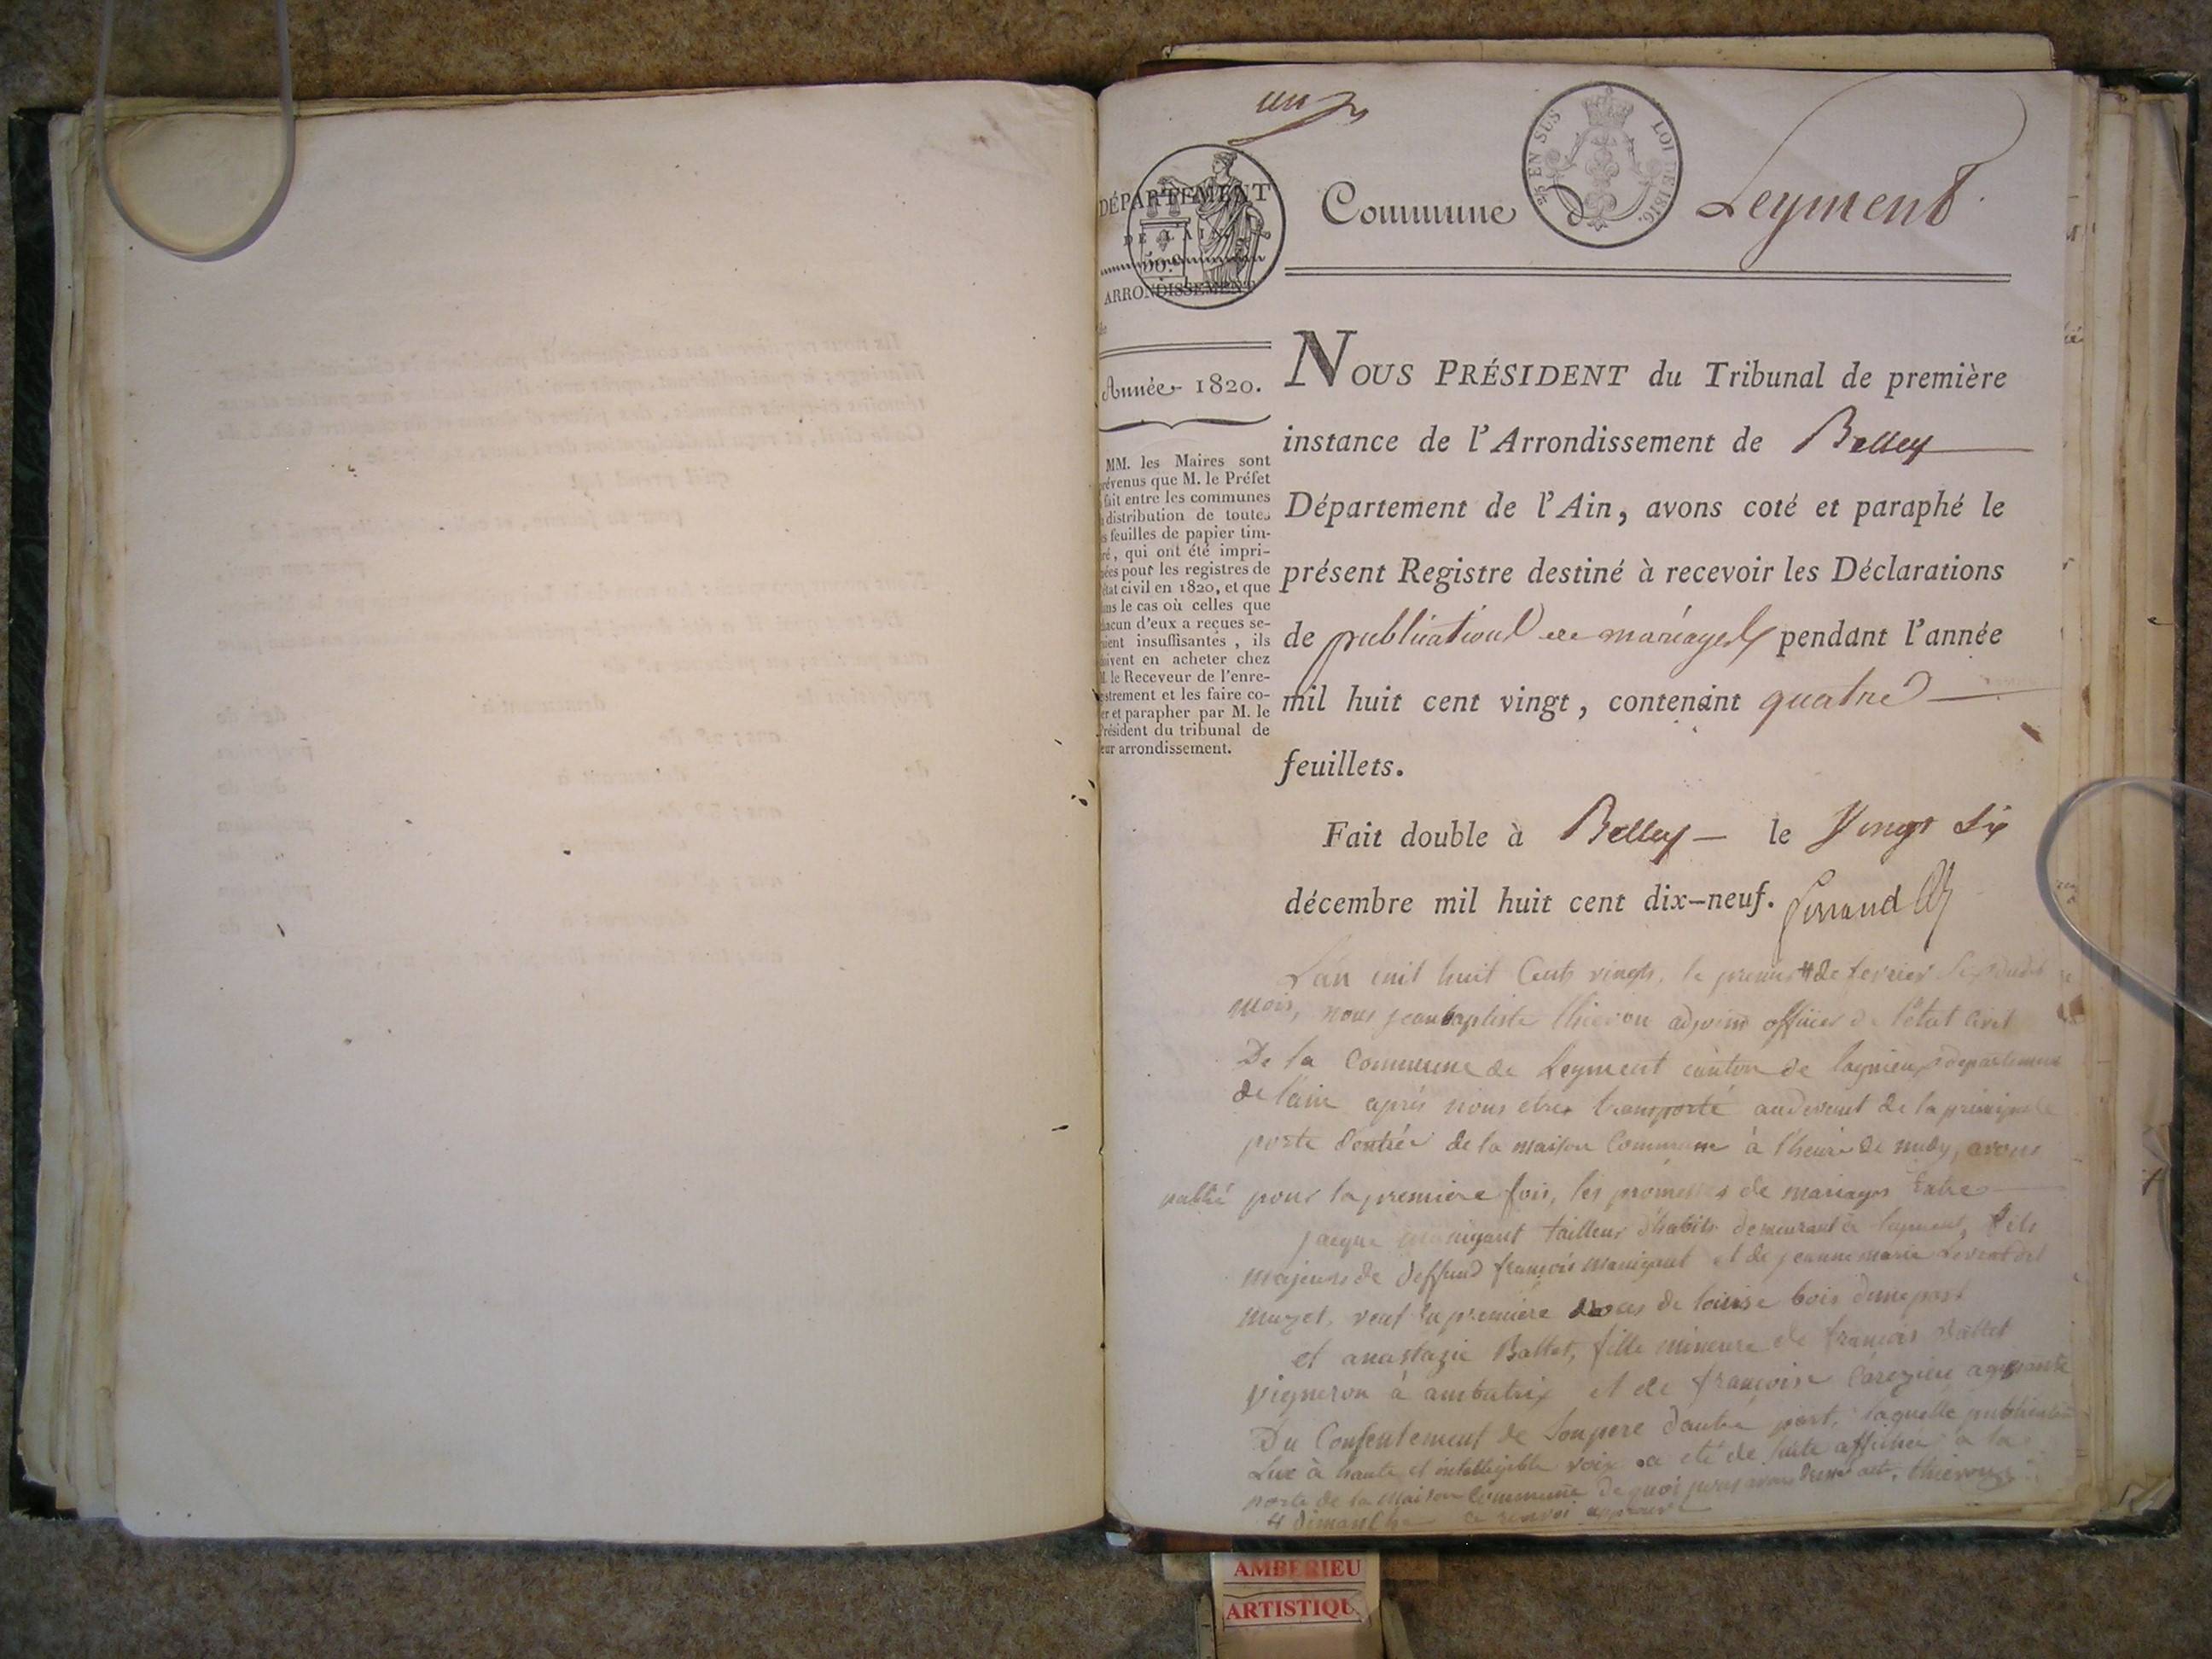 un
DÉPARTEMENT
DE L'AIN.
50 c
ARRONDISSEMENT
de
Année 1820.
MM. les Maires sont
prévenus que M. le Préfet
a fait entre les communes
la distribution de toutes
les feuilles de papier tim-
bré, qui ont été impri-
mées pour les registres de
l'état civil en 1820, et que
dans le cas où celles que
chacun d'eux a reçues se-
roient insuffisantes, ils
doivent en acheter chez
M. le Receveur de l'enre-
gistrement et les faire co-
ter et parapher par M. le
Président du tribunal de
leur arrondissement.
EN SUS LOI DE 1816.
Commune d Leyment
NOUS PRÉSIDENT du Tribunal de première
instance de l'Arrondissement de Belley
Département de l'Ain, avons coté et paraphé le
présent Registre destiné à recevoir les Déclarations
de publication de mariages pendant l'année
mil huit cent vingt, contenant quatre
feuillets.
Fait double à Belley le Vingt Six
décembre mil huit cent dix-neuf.
L'an mil huit Cents vingt, le premier # de fevrier
mois, nous jean baptiste thievon adjoint officier de l'état Civil
De la Commune de Leyment canton de lagnieu departement
de l'ain après nous etres transporté audevant de la principale
porte d'entrée de la maison Commune à l'heure de midy, avons
publié pour la premiere fois, les promesses de mariages Entre
jacque manigant tailleur d'habits demeurant à leyment, fils
majeurs de deffund françois manigant et de jeanne marie
muzet, veuf en premiere noces de louise bois d'une part
et anastazie Ballet, fille mineure de françois Ballet
vigneron à ambutrix et de françoise
Du Consentement de Son pere d'autre part, laquelle publication
Lue à haute et intelligible voix a eté de suite affichée à la
porte de la maison Commune de quoi nous avons dressé acte, thievon
# dimanche ce renvoi approuvé
AMBERIEU
ARTISTIQU